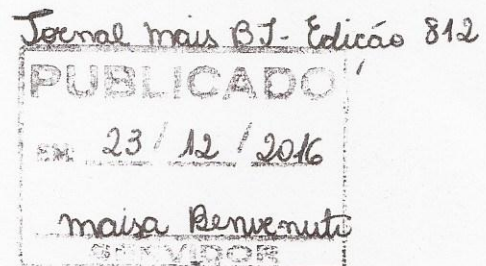 Jornal Mais BJ - Edição 812
PUBLICADO
EM: 23 / 12 / 2016
Maisa Benvenuti
SERVIDOR